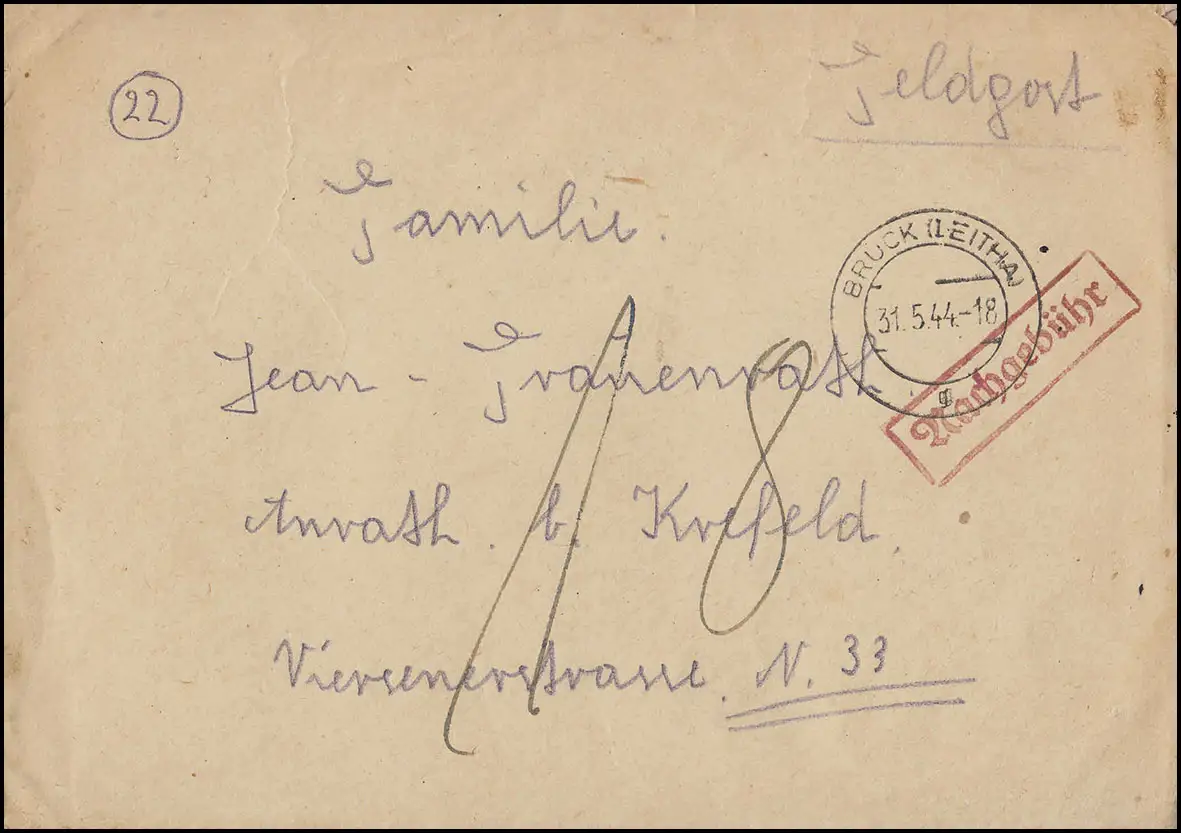 22
Feldpost
Familie.
BRUCK (LEITHA)
31.5.44.-18
g
Nachgebühr
Jean - Frauenrath
18
Anrath. b. Krefeld.
Viersenerstrasse. N. 33